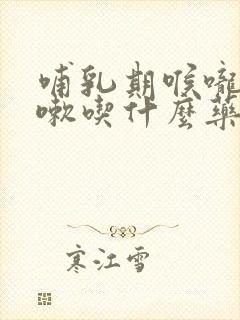 哺乳期喉嚨
嗽喫什麼藥
寒江雪